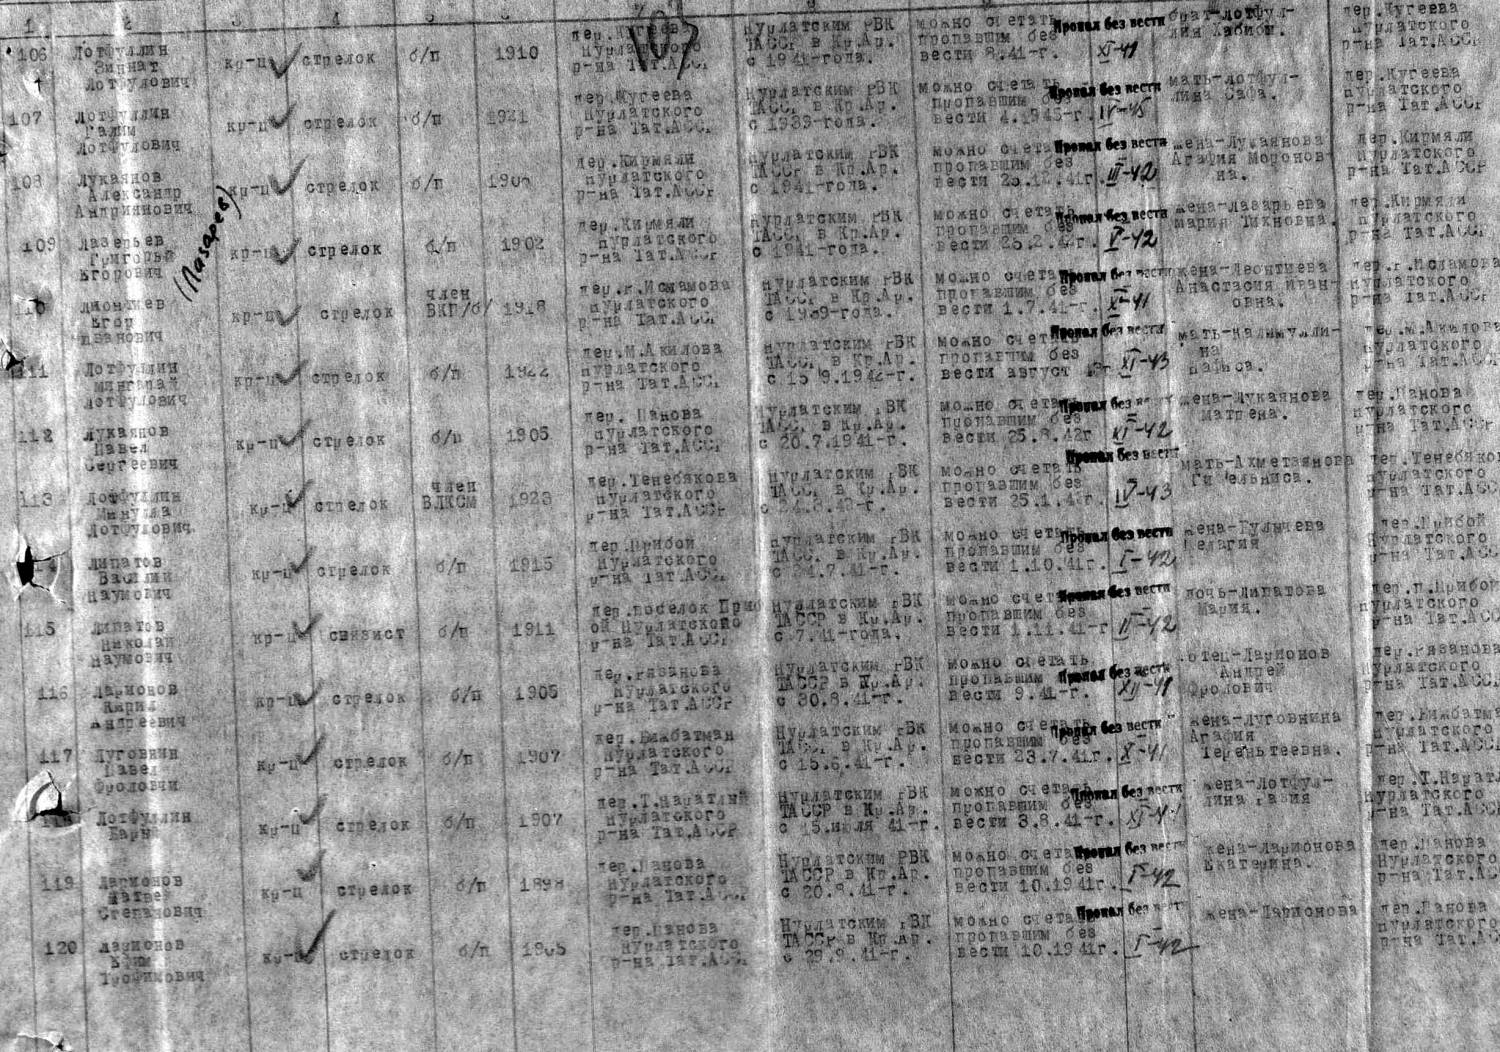 1 2 3 4
106 Лотфуллин кр-ц стрелок б/п 1910 дер.Кугеева Нурлатским РВК можно считать Пропал без вести брат-лотфул- дер.Кугеева
Зиннат Нурлатского ТАССР в Кр.Ар. пропавшим без XI-41 лин Хабибы. нурлатского
Лотфулович р-на Тат.АССР с 1941-года. вести 8.41-г. р-на Тат.АССР
107 Лотфуллин кр-ц стрелок б/п 1921 дер.Кугеева Нурлатским РВК можно счетать Пропал без вести мать-лотфул- дер.Кугеева
Галим Нурлатского ТАССР в Кр.Ар. пропавшим без IV-45 лина Сафа. нурлатского
Лотфулович р-на Тат.АССР с 1939-года. вести 4.1945-г. р-на Тат.АССР
108 Лукаянов кр-ц стрелок б/п дер.Кирмяли нурлатским РВК можно счетать Пропал без вести жена-Лукаянова дер.Кирмяли
Александр нурлатского ТАССР в Кр.Ар. пропавшим без III-42 Агафия Миронов- нурлатского
Андриянович р-на Тат.АССР с 1941-года. вести 25.12.41г. на. р-на Тат.АССР
109 Лазерьев (Лазарев) кр-ц стрелок б/п 1902 дер.Кирмяли нурлатским РВК можно счетать Пропал без вести жена-Лазарьева дер.Кирмяли
Григорий нурлатского ТАССР в Кр.Ар. пропавшим без V-42 мария Тихновна. нурлатского
Егорович р-на Тат.АССР с 1941-года. вести р-на Тат.АССР
110 кр-ц стрелок член ВКП/б/ 1918 дер.г.Исламова нурлатским РВК можно счетать Пропал без вести жена-Леонтиева дер.г.Исламова
Егор нурлатского ТАССР в Кр.Ар. пропавшим без XI-41 Анастасия Иван- нурлатского
Иванович р-на Тат.АССР с 1939-года. вести 1.7.41-г. овна. р-на Тат.АССР
111 Лотфуллин кр-ц стрелок б/п 1922 дер.М.Акилова нурлатским РВК можно счетать Пропал без вести дер.М.Акилова
нурлатского ТАССР в Кр.Ар. пропавшим без XI-43 на нурлатского
лотфулович р-на Тат.АССР вести август р-на Тат.АССР
112 Лукаянов кр-ц стрелок б/п 1905 дер. Панова нурлатским РВК можно счетать Пропал без вести жена-Лукаянова дер.Панова
Павел нурлатского ТАССР в Кр.Ар. пропавшим без XI-42 матрена. нурлатского
Сергеевич р-на Тат.АССР с 20.7.1941-г. вести 25.8.42г р-на Тат.АССР
113 Лотфуллин кр-ц стрелок член ВЛКСМ 1923 дер.Тенебякова нурлатским РВК можно счетать Пропал без вести мать-Ахметзянова дер.Тенебяков
нурлатского ТАССР в Кр.Ар. пропавшим без IV-43 нурлатского
Лотфулович р-на Тат.АССР вести р-на Тат.АССР
Липатов кр-ц стрелок б/п 1915 дер.Прибой нурлатским РВК можно счетать Пропал без вести дер.Прибой
Василий Нурлатского ТАССР в Кр.Ар. пропавшим без I-42 Пелагия Нурлатского
Наумович р-на Тат.АССР вести 1.10.41г. р-на Тат.АССР
115 Липатов кр-ц связист б/п 1911 дер.поселок Приб Нурлатским РВК можно счетать Пропал без вести дочь-Липатова дер.п.Прибой
Николай ой Нурлатского ТАССР в Кр.Ар. пропавшим без II-42 Мария. нурлатского
Наумович р-на Тат.АССР с 7.41-года. вести 1.11.41-г р-на Тат.АССР
116 Ларионов кр-ц стрелок б/п 1905 дер.Рязанова Нурлатским РВК можно счетать Пропал без вести отец-Ларионов дер.Рязанова
Кирил нурлатского ТАССР в Кр.Ар. пропавшим без XII-41 Андрей нурлатского
Андреевич р-на Тат.АССР с 30.8.41-г. вести 9.41-г. Фролович р-на Тат.АССР
117 Луговнин кр-ц стрелок б/п 1907 дер.Бикбатман Нурлатским РВК можно счетать Пропал без вести жена-Луговнина дер.Бикбатман
Павел Нурлатского ТАССР в Кр.Ар. пропавшим без X-41 Агафия нурлатского
Фролович р-на Тат.АССР с 15.6.41-г. вести 23.7.41г. Тереньтеевна. р-на Тат.АССР
Лотфуллин кр-ц стрелок б/п 1907 дер.Т.Наратлый Нурлатским РВК можно счетать Пропал без вести жена-Лотфул- дер.Т.Наратл
нурлатского ТАССР в Кр.Ар. пропавшим без XI-41 нурлатского
р-на Тат.АССР с 15.июля 41-г. вести 3.8.41-г. р-на Тат.АССР
119 Ларионов кр-ц стрелок б/п 1898 дер.Панова Нурлатским РВК можно счетать Пропал без вести жена-Ларионова дер.Панова
Матвей нурлатского ТАССР в Кр.Ар. пропавшим без I-42 Екатерина. Нурлатского
Степанович р-на Тат.АССР с 20.8.41-г. вести 10.1941г. р-на Тат.АССР
120 Ларионов кр-ц стрелок б/п 1905 дер.Панова Нурлатским РВК можно счетать Пропал без вести жена-Ларионова дер.Панова
Ефим нурлатского ТАССР в Кр.Ар. пропавшим без I-42 нурлатского
Трофимович р-на Тат.АССР с 29.9.41-г. вести 10.1941г. р-на Тат.АССР